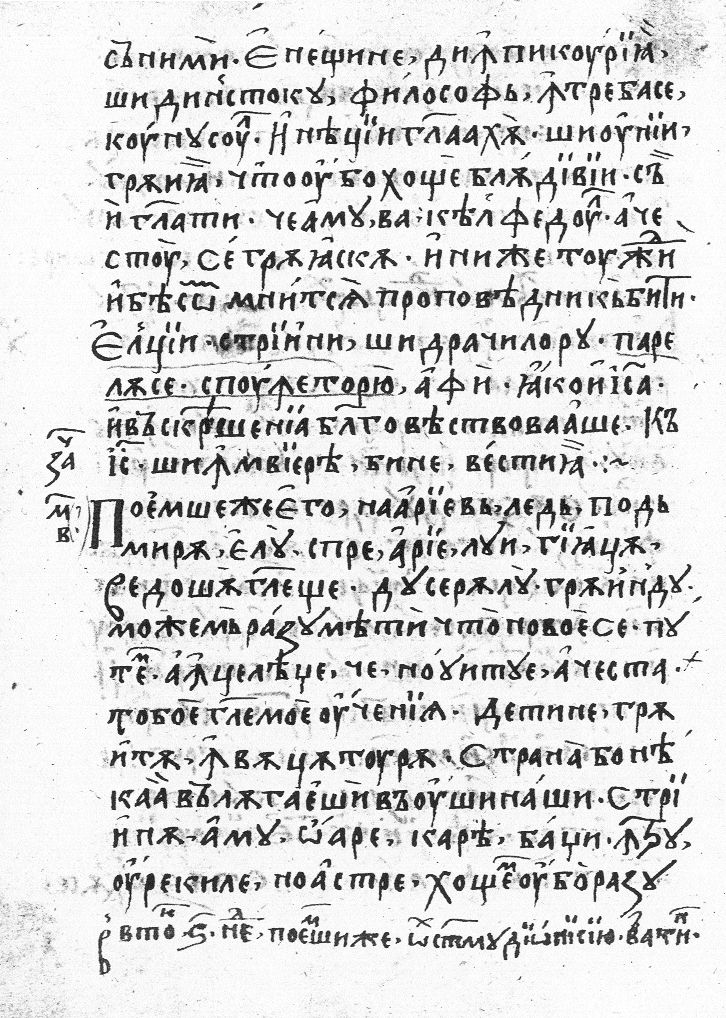 съними · Єнещине, диѧпикоурїꙗ,
ши динстоку, философь, ѧтребасе,
коупусоу · И нѣцїи гл҃аахѫ · шиоунїи,
грѫиꙗ, чтооубо хощеблѧдївїи · съ
и гл҃ати · чеаму, ва · кѣл федоу · аче
стоу, се грѫꙗскѫ · и нижетоужи
ибѣсѡⷨ мнитсѧ проповѣдникьбити ·
Єлцїи · стрїини, ши драчилору · паре
лѫсе · споуѧеторю, афи · ꙗкоиіс҃а ·
ивъскр҃шенїа бл҃говѣствовааше · Къ
іс҃ · шиѧмвїерѣ, бине, вестиꙗ ·
за҃ч
м҃в ·
Поемшежеего, наарїевь, ледь, подь
мирѫ, єлу · спре, арїе, луи, гїꙗцѫ,
ведошѫ гл҃еще · дусерѫлу · грѫинду ·
можемьразумѣти чтоновоесе · пу
теⷨ · аѧцелѣце, че, ноуитуе, ачеста ·
тобое гл҃емое оученїѧ · Детине, грѫ
итѫ, ѧвѫцѫтоурѫ · Странабонѣ
каавълѫгаешивъоушинаши · Стрїи
инѫ · аму, ѡаре, карѣ, баци · ѧꙃу,
оурекиле, ноастре, хощеⷨ оуборазу
втоⷬ, ꙅ · не, поеⷨшиже, ѿстмудїѡнисїю, ·